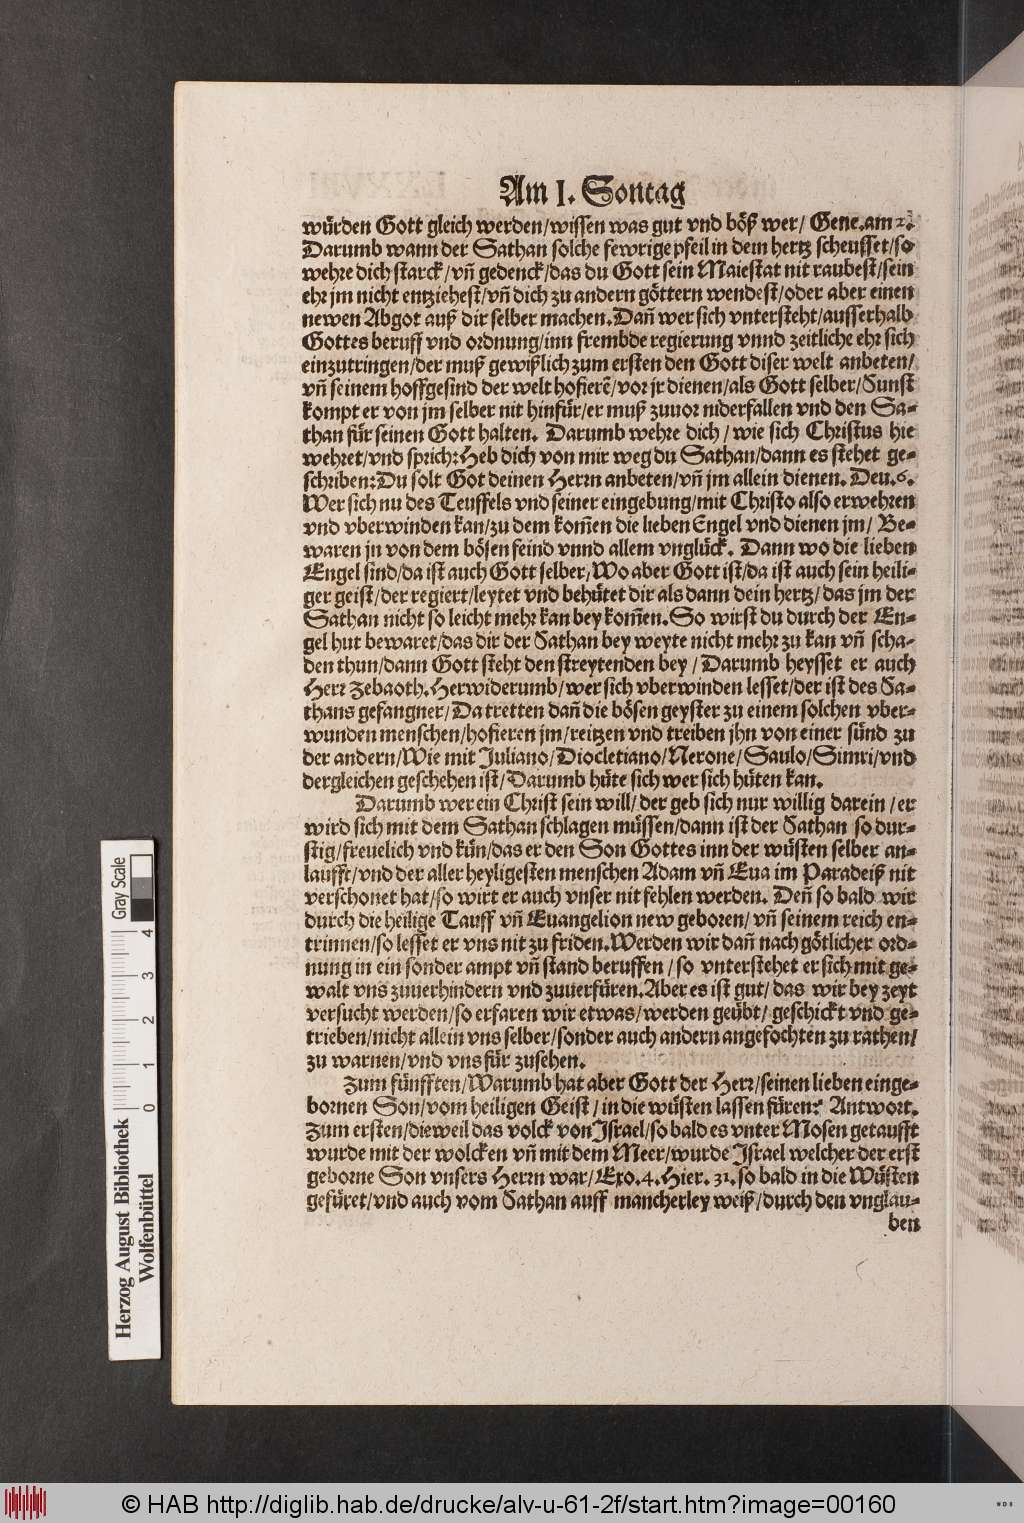 Am I. Sontag
würden Gott gleich werden/wissen was gut vnd böß wer/ Gene.am 2.
Darumb wann der Sathan solche fewrige pfeil in dem hertz scheusset/so
wehre dich starck/vñ gedenck/das du Gott sein Maiestat nit raubest/sein
ehr jm nicht entziehest/vñ dich zu andern göttern wendest/oder aber einen
newen Abgot auß dir selber machen.Dañ wer sich vntersteht/ausserhalb
Gottes beruff vnd ordnung/inn frembde regierung vnnd zeitliche ehr sich
einzutringen/der muß gewißlich zum ersten den Gott diser welt anbeten/
vñ seinem hoffgesind der welt hofierẽ/vor jr dienen/als Gott selber/Sunst
kompt er von jm selber nit hinfür/er muß zuuor niderfallen vnd den Sa-
than für seinen Gott halten. Darumb wehre dich/wie sich Christus hie
wehret/vnd sprich:Heb dich von mir weg du Sathan/dann es stehet ge-
schriben:Du solt Got deinen Herrn anbeten/vñ jm allein dienen. Deu.6.
Wer sich nu des Teuffels vnd seiner eingebung/mit Christo also erwehren
vnd vberwinden kan/zu dem kom̃en die lieben Engel vnd dienen jm/ Be-
waren jn von dem bösen feind vnnd allem vnglück. Dann wo die lieben
Engel sind/da ist auch Gott selber/Wo aber Gott ist/da ist auch sein heili-
ger geist/der regiert/leytet vnd behütet dir als dann dein hertz/das jm der
Sathan nicht so leicht mehr kan bey kom̃en.So wirst du durch der En-
gel hut bewaret/das dir der Sathan bey weyte nicht mehr zu kan vñ scha-
den thun/dann Gott steht den streytenden bey/Darumb heysset er auch
Herr Zebaoth.Herwiderumb/wer sich vberwinden lesset/der ist des Sa-
thans gefangner/Da tretten dañ die bösen geyster zu einem solchen vber-
wunden menschen/hofieren jm/reitzen vnd treiben jhn von einer sünd zu
der andern/Wie mit Juliano/Diocletiano/Nerone/Saulo/Simri/vnd
dergleichen geschehen ist/Darumb hüte sich wer sich hüten kan.
Darumb wer ein Christ sein will/der geb sich nur willig darein/er
wird sich mit dem Sathan schlagen müssen/dann ist der Sathan so dur-
stig/freuelich vnd kün/das er den Son Gottes inn der wüsten selber an-
laufft/vnd der aller heyligesten menschen Adam vñ Eua im Paradeiß nit
verschonet hat/so wirt er auch vnser nit fehlen werden. Deñ so bald wir
durch die heilige Tauff vñ Euangelion new geboren/vñ seinem reich en-
trinnen/so lesset er vns nit zu friden.Werden wir dañ nach götlicher ord-
nung in ein sonder ampt vñ stand beruffen/so vnterstehet er sich mit ge-
walt vns zuuerhindern vnd zuuerfüren.Aber es ist gut/das wir bey zeyt
versucht werden/so erfaren wir etwas/werden geübt/geschickt vnd ge-
trieben/nicht allein vns selber/sonder auch andern angefochten zu rathen/
zu warnen/vnd vns für zusehen.
Zum fünfften/Warumb hat aber Gott der Herr/seinen lieben einge-
bornen Son/vom heiligen Geist/in die wüsten lassen füren? Antwort.
Zum ersten/dieweil das volck von Israel/so bald es vnter Mosen getaufft
wurde mit der wolcken vñ mit dem Meer/wurde Israel welcher der erst
geborne Son vnsers Herrn war/Exo.4.Hier.31.so bald in die Wüsten
gefüret/vnd auch vom Sathan auff mancherley weiß/durch den vnglau-
ben
Herzog August Bibliothek
Wolfenbüttel
0 1 2 3 4
Gray Scale
© HAB http://diglib.hab.de/drucke/alv-u-61-2f/start.htm?image=00160